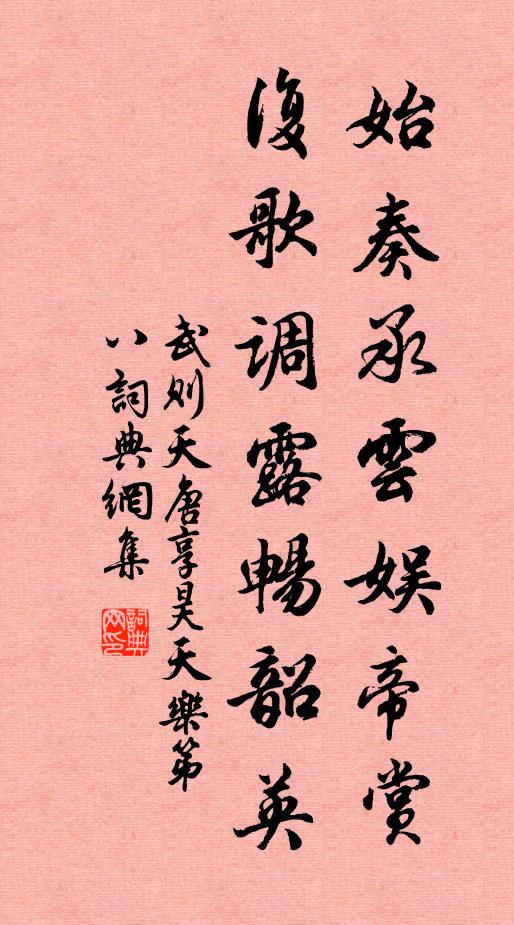 始奏承雲娛帝賞
復歌調露暢韶英
武則天唐享昊天樂第
八詞典網集
詞典
网印